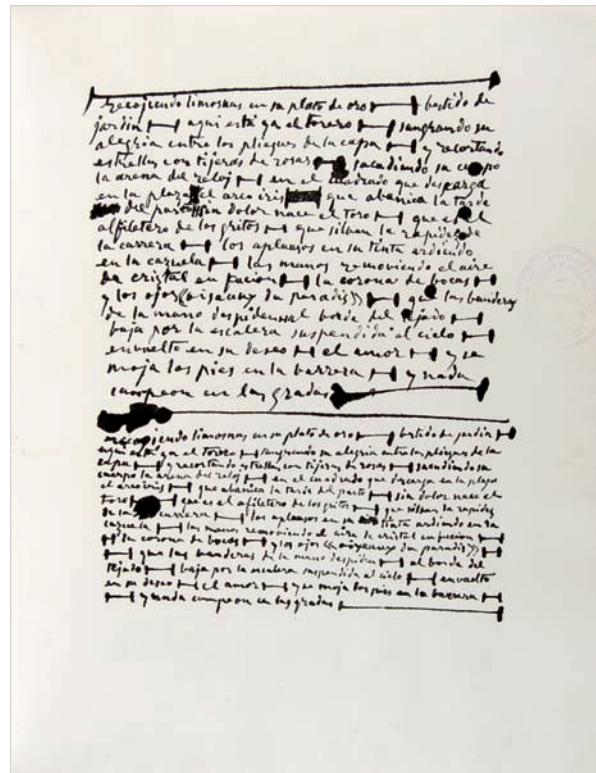 recojiendo limosnas en su plato de oro bestido de
jardin aqui está ya el torero sangrando su
alegria entre los pliegues de la capa y recortando
estrellas con tijeras de rosas sacudiendo su cuerpo
la arena del reloj en el cuadrado que descarga
en la plaza el arco iris que abanica la tarde
del parto sin dolor nace el toro que es el
alfiletero de los gritos que silban la rapidez de
la carrera los aplausos en su tinta ardiendo
en la cazuela las manos removiendo el aire
de cristal en fucion la corona de bocas
y los ojos ((oiseaux du paradis)) que las banderas
de la mano despiden al borde del tejado
baja por la escalera suspendida al cielo
envuelto en su deseo el amor y se
moja los pies en la barrera y nada
campeon en las gradas
recojiendo limosnas en su plato de oro bestido de jardin
aqui está ya el torero sangrando su alegria entre los pliegues de la
capa y recortando estrellas con tijeras de rosas sacudiendo su
cuerpo la arena del reloj en el cuadrado que descarga en la plaza
el arco iris que abanica la tarde del parto sin dolor nace el
toro que es el alfiletero de los gritos que silban la rapidez
de la carrera los aplausos en su tinta ardiendo en la
cazuela las manos removiendo el aire de cristal en fucion
la corona de bocas y los ojos ((oiseaux du paradis))
que las banderas de la mano despiden al borde del
tejado baja por la escalera suspendida al cielo envuelto
en su deseo el amor y se moja los pies en la barrera
y nada campeon en las gradas